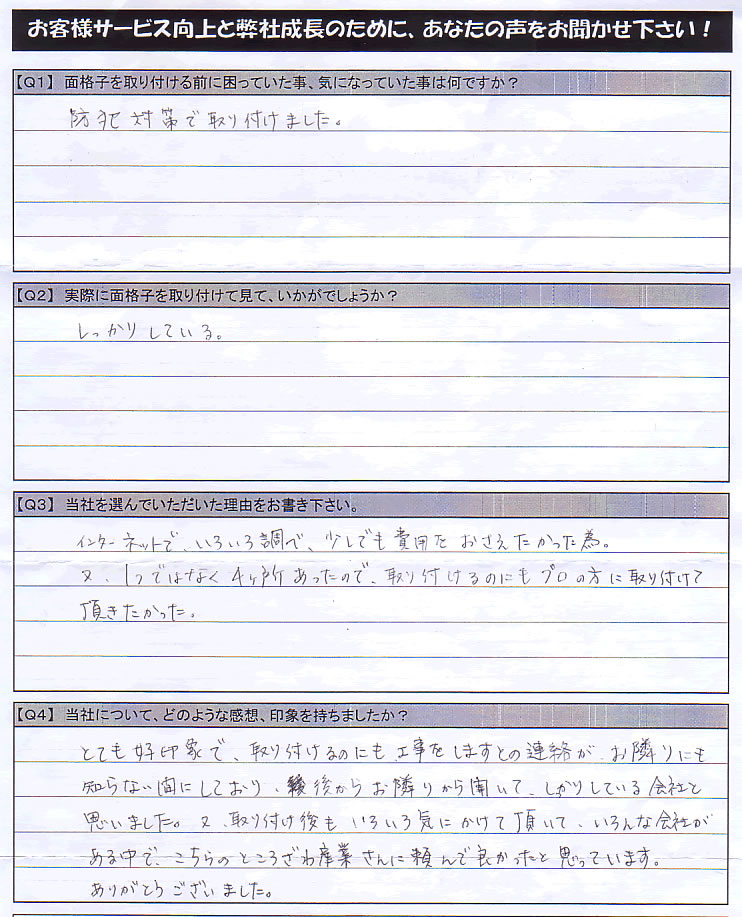 お客様サービス向上と弊社成長のために、あなたの声をお聞かせ下さい！
【Q1】 面格子を取り付ける前に困っていた事、気になっていた事は何ですか？
防犯対策で取り付けました。
【Q2】 実際に面格子を取り付けて見て、いかがでしょうか？
しっかりしている。
【Q3】 当社を選んでいただいた理由をお書き下さい。
インターネットで、いろいろ調べ、少しでも費用をおさえたかった為。
又、1つではなく4ヶ所あったので、取り付けるのにもプロの方に取り付けて
頂きたかった。
【Q4】 当社について、どのような感想、印象を持ちましたか？
とても好印象で、取り付けるのにも工事をしますとの連絡が、お隣りにも
知らない間にしており、後からお隣りから聞いて、しかりしている会社と
思いました。又、取り付け後もいろいろ気にかけて頂いて、いろんな会社が
ある中で、こちらのところざわ産業さんに頼んで良かったと思っています。
ありがとうございました。